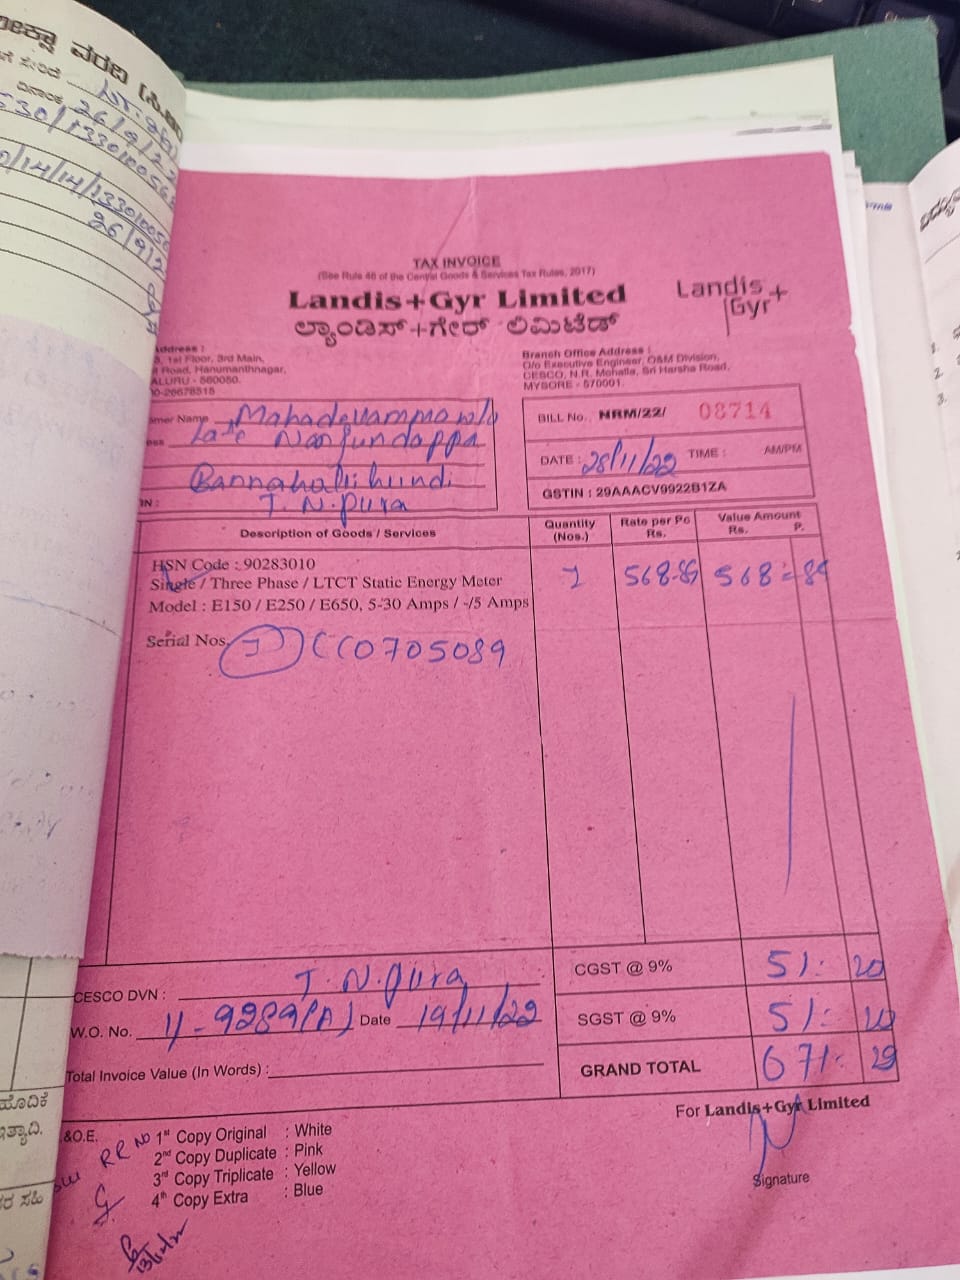 ವರದಿ
ದಿನಾಂಕ 26/9/2
530/1330100568
/14/14/13301005
26/9/2
TAX INVOICE
(See Rule 46 of the Central Goods & Services Tax Rules, 2017)
Landis+Gyr Limited
Landis+
Gyr
ಲ್ಯಾಂಡಿಸ್+ಗೇರ್ ಲಿಮಿಟೆಡ್
Address :
1st Floor, 3rd Main,
Road, Hanumanthnagar,
ALURU - 560050.
0-26678515
Branch Office Address :
O/o Executive Engineer, O&M Division,
CESCO, N.R. Mohalla, Sri Harsha Road,
MYSORE - 570001.
mer Name Mahadevamma w/o
ess Late Nanjundappa
Bannahallihundi
IN : T. N. Pura
BILL No. NRM/22/ 08714
DATE : 28/11/22 TIME : AM/PM
GSTIN : 29AAACV9922B1ZA
Description of Goods / Services
Quantity (Nos.)
Rate per Pc Rs.
Value Amount Rs. P.
HSN Code : 90283010
Single / Three Phase / LTCT Static Energy Meter
1 568-89 568=89
Model : E150 / E250 / E650, 5-30 Amps / -/5 Amps
Serial Nos. 1 CC0705089
CESCO DVN : T. N. Pura
CGST @ 9% 51: 20
W.O. No. 11-9289(A) Date 19/11/22
SGST @ 9% 51: 20
Total Invoice Value (In Words) :
GRAND TOTAL 671: 29
For Landis+Gyr Limited
&O.E.
1st Copy Original : White
2nd Copy Duplicate : Pink
3rd Copy Triplicate : Yellow
4th Copy Extra : Blue
RR NO
Signature
ಹೊದಿಕೆ
ಇತ್ಯಾದಿ.
ಸಹಿ
1.
2
3.